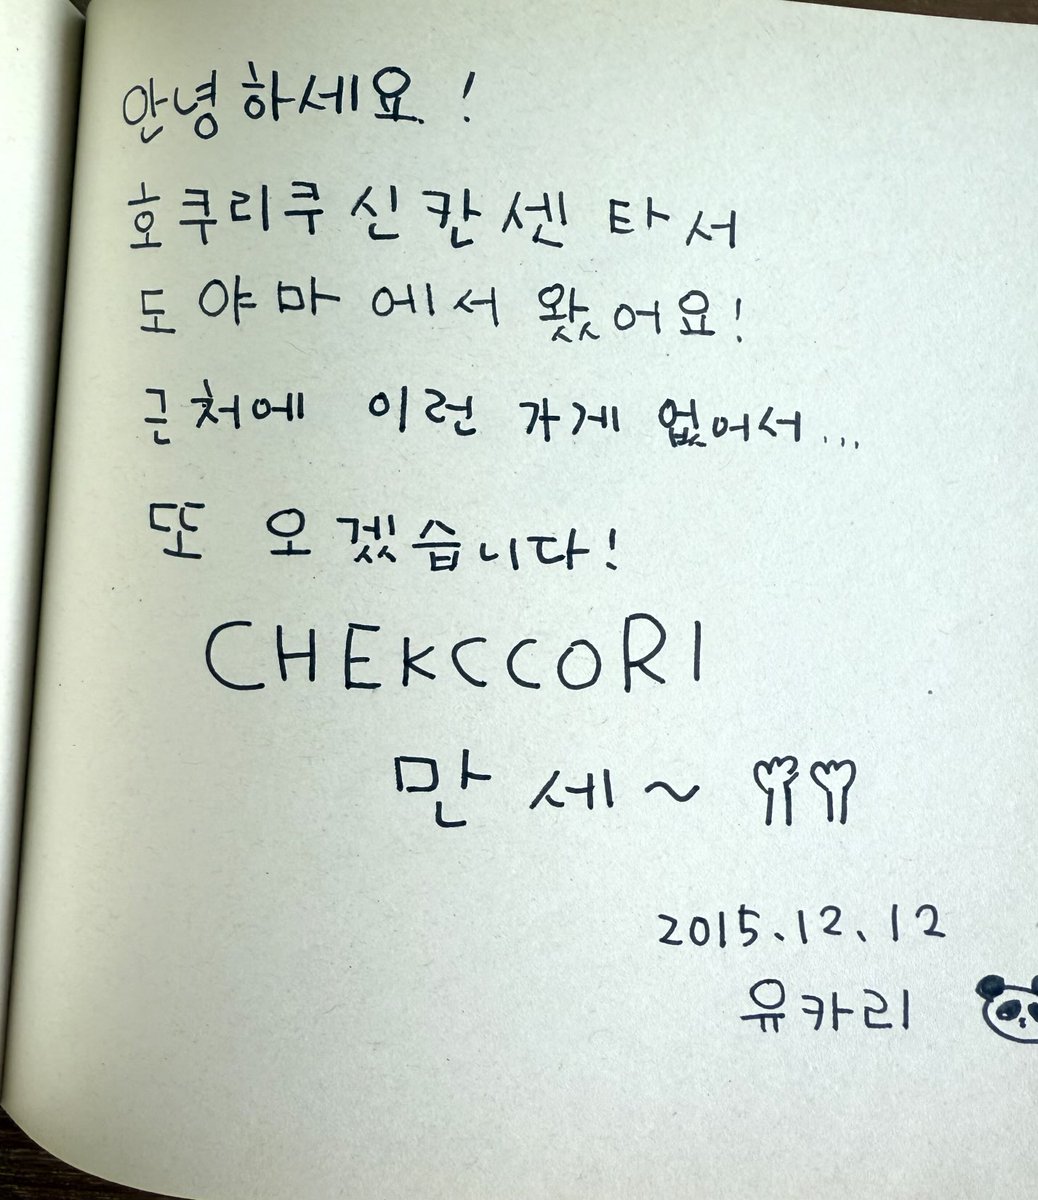 안녕하세요!
호쿠리쿠 신칸센 타서
도야마에서 왔어요!
근처에 이런 가게 없어서...
또 오겠습니다!
CHEKCCORI
만세~
2015.12.12
유카리